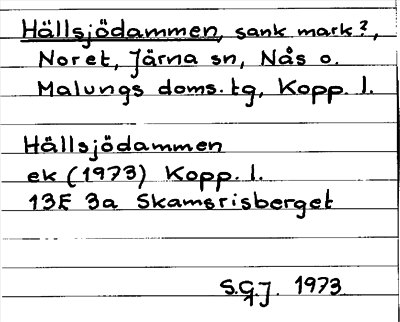 Hällsjödammen, sank mark?,
Noret, Järna sn, Nås o.
Malungs doms. tg, Kopp. l.
Hällsjödammen
ek (1973) Kopp. l.
13E 3a Skamsrisberget
S.G.J. 1973